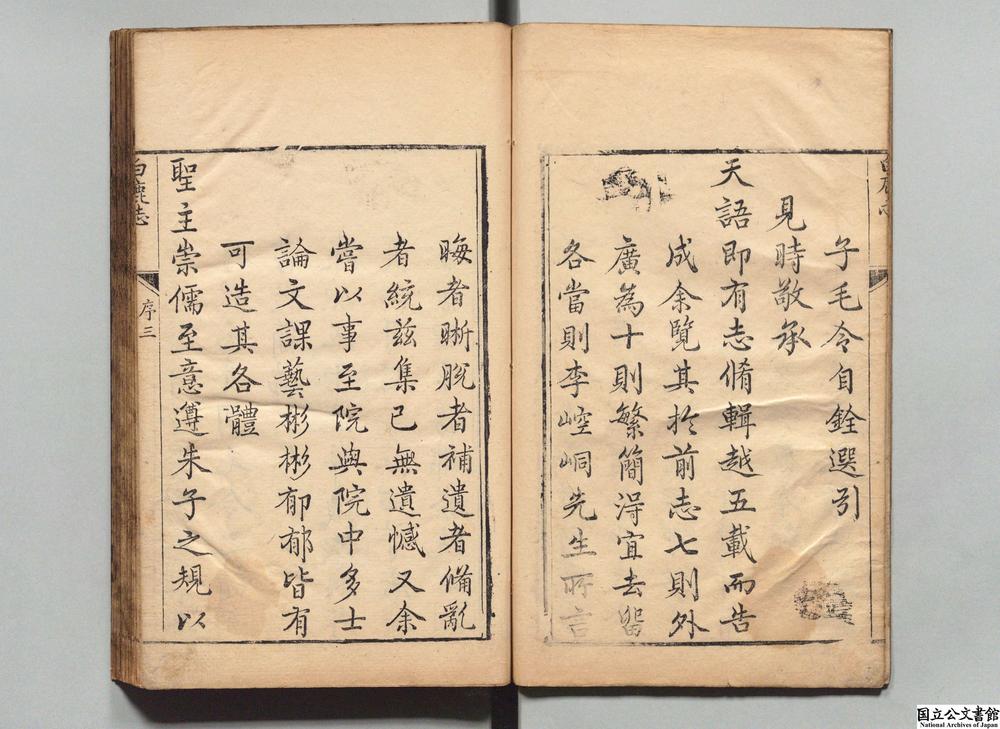 子毛令自銓選引
見時敬承
天語即有志脩輯越五載而告
成余覽其扵前志七則外
廣為十則繁簡淂宜去留
各當則李崆峒先生所言
晦者晰脫者補遺者備亂
者統兹集已無遺憾又余
嘗以事至院與院中多士
論文課藝彬彬郁郁皆有
可造其各體
聖主崇儒至意遵朱子之規以
白鹿志
序三
国立公文書館
National Archives of Japan